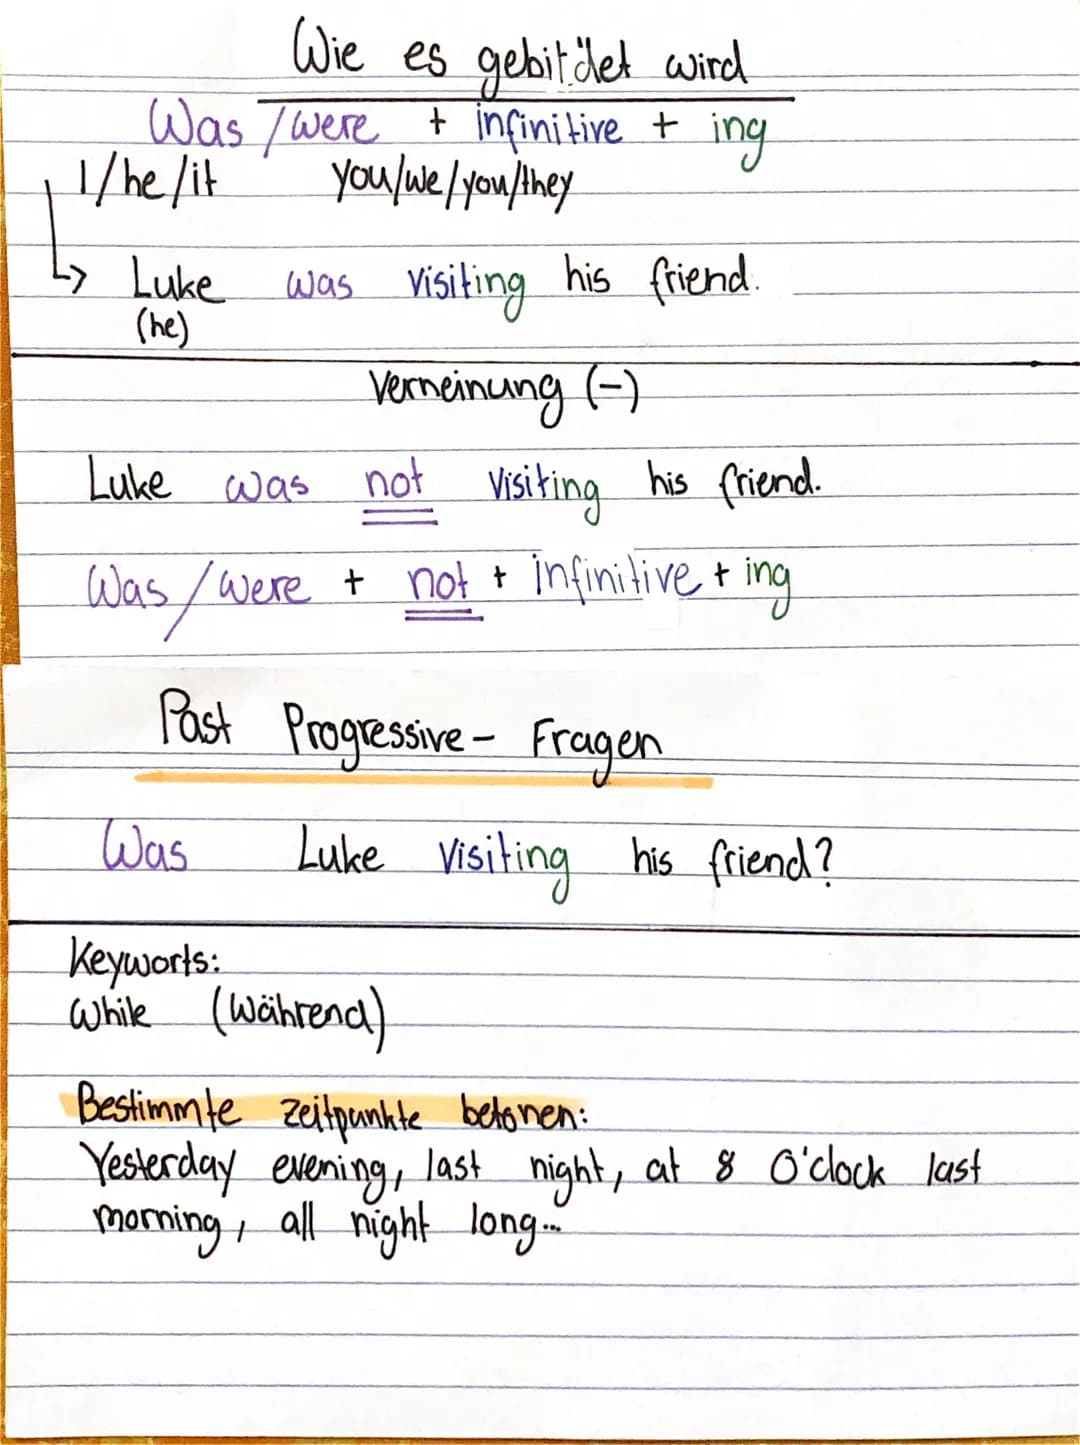 Wie es gebildet wird
Was / were + infinitive + ing
I/he/it you/we/you/they
Luke was visiting his friend.
(he)
Verneinung (-)
Luke was not visiting his friend.
Was/were + not + infinitive + ing
Past Progressive - Fragen
Was Luke visiting his friend?
Keyworts:
While (Während)
Bestimmte Zeitpunkte betonen:
Yesterday evening, last night, at 8 O'clock last
morning, all night long...